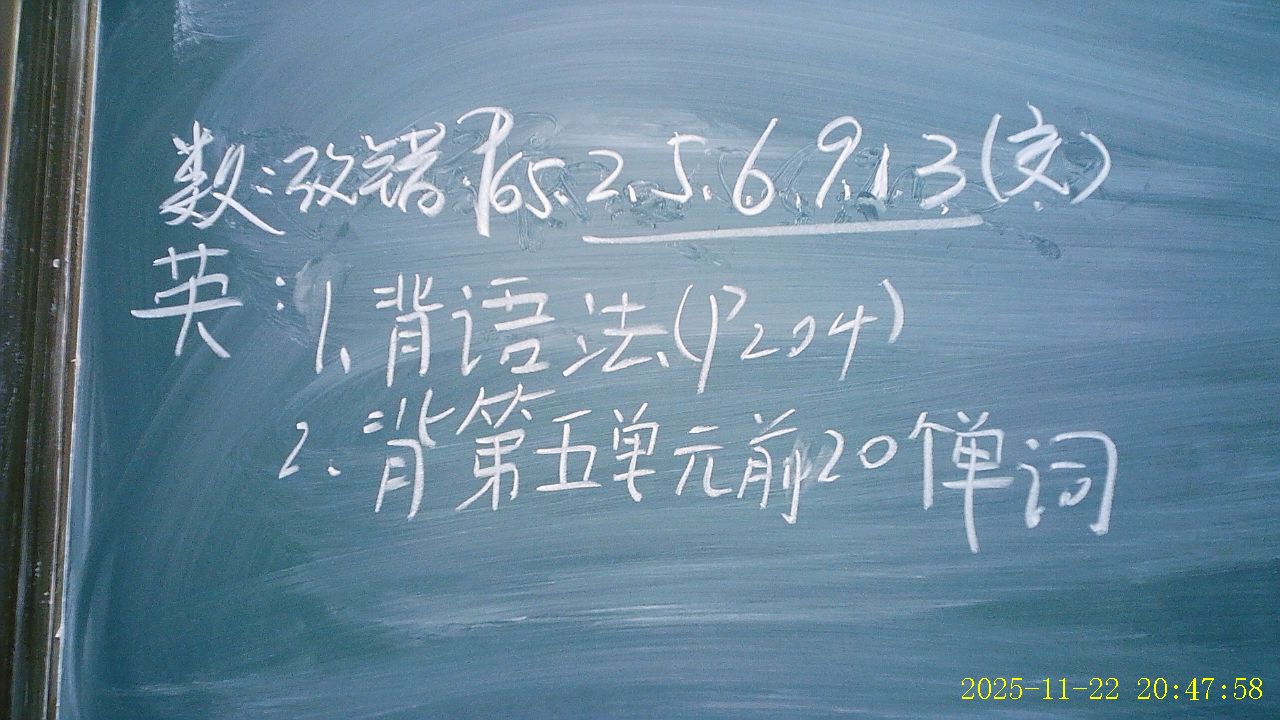 数:改错.P65.2.5.6.9.1.3(文)
英:1、背语法(P204)
2.背第五单元前20个单词
2025-11-22 20:47:58